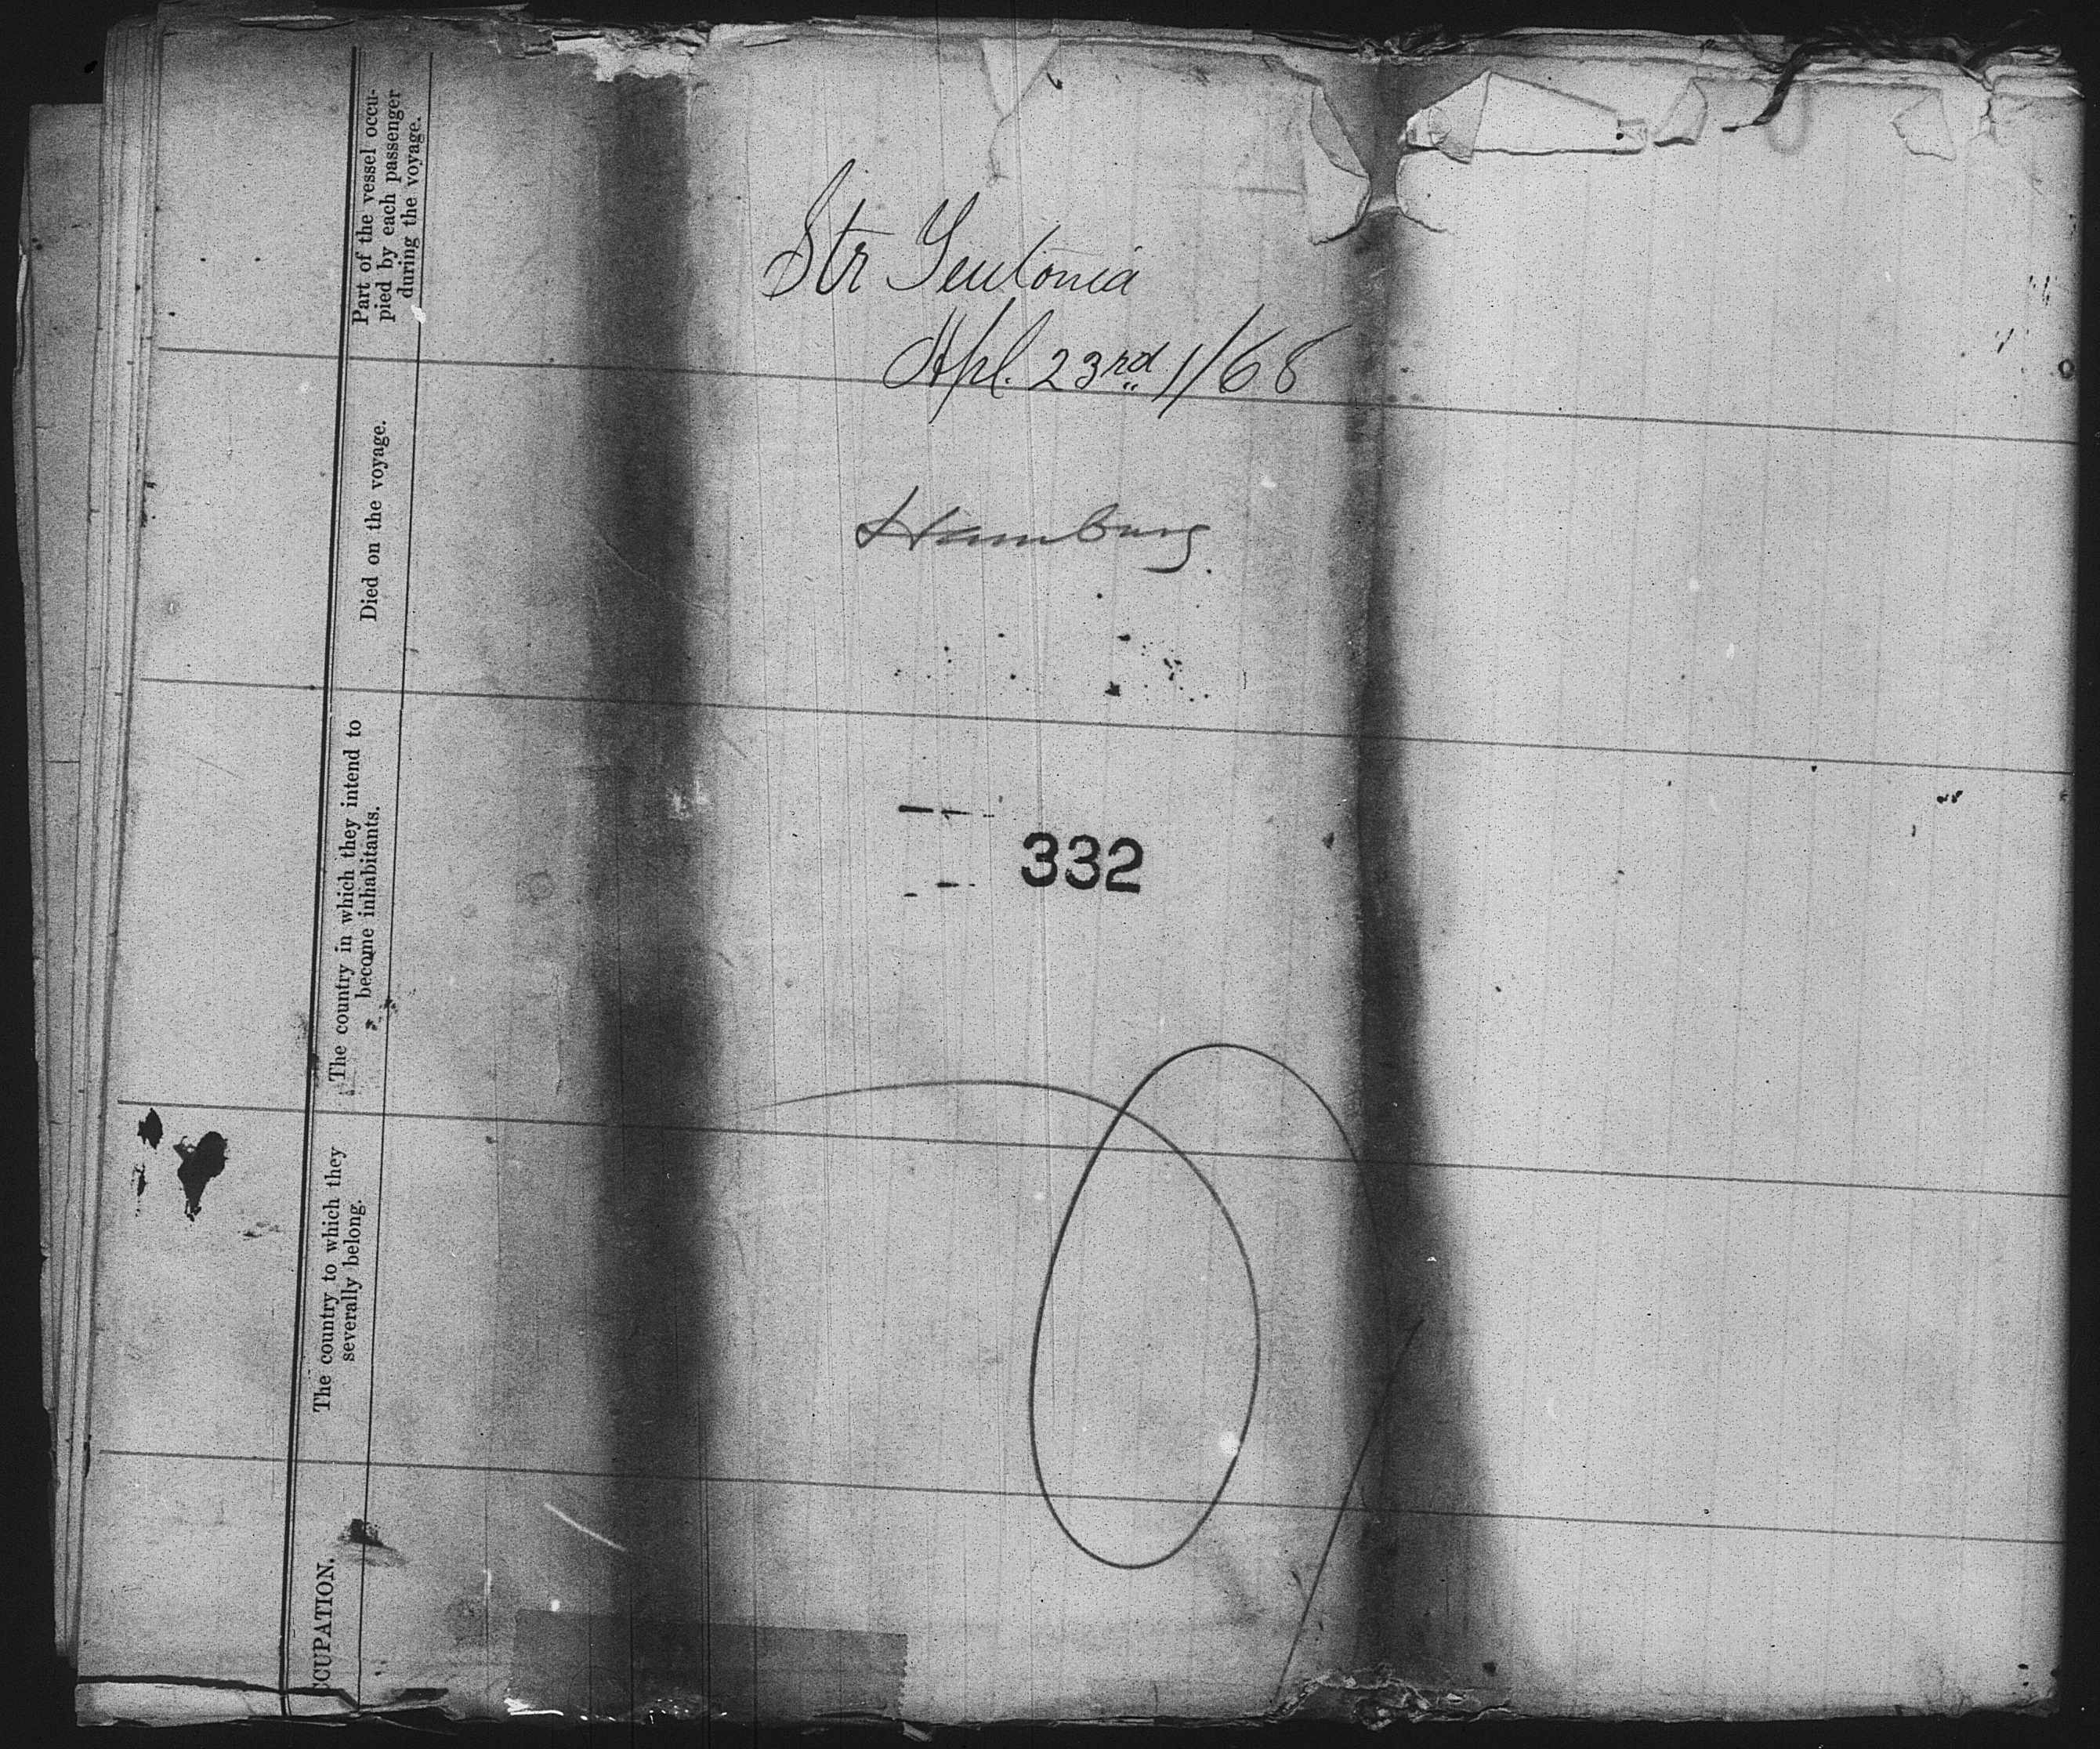 Str Teutonia
Apl. 23rd 1/68
Hamburg.
332
Part of the vessel occu-
pied by each passenger
during the voyage.
Died on the voyage.
The country in which they intend to
become inhabitants.
The country to which they
severally belong.
CCUPATION.